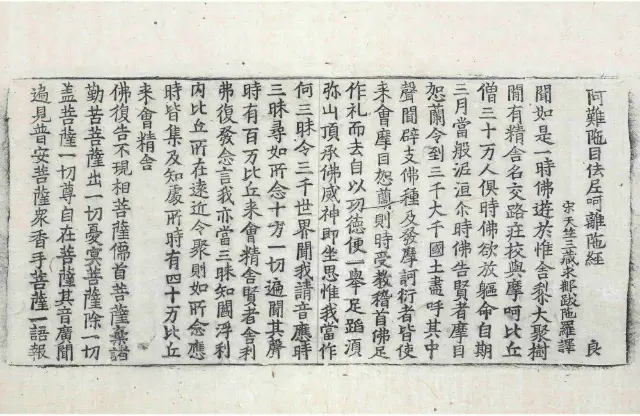 阿難陁目佉尼呵離陁經 良
宋天竺三藏求那跋陁羅譯
聞如是一時佛遊於惟舍梨大聚樹
閒有精舍名交路莊校與摩呵比丘
僧三十万人俱時佛欲放軀命自期
三月當般泥洹尒時佛告賢者摩目
恕蘭令到三千大千國土盡呼其中
聲聞辟支佛種及發摩訶衍者皆使
来會摩目恕蘭則時受教稽首佛足
作礼而去自以功德便一舉足蹈湏
弥山頂承佛威神即坐思惟我當作
何三昧令三千世界聞我請音應時
三昧尋如所念十方一切遍聞其聲
時有百万比丘来會精舍賢者舍利
弗復發念言我亦當三昧知閻浮利
内比丘所在遠近令聚則如所念應
時皆集及知處所時有四十万比丘
来會精舍
佛復告不現相菩薩儒首菩薩棄諸
勤苦菩薩出一切憂冥菩薩除一切
盖菩薩一切尊自在菩薩其音廣聞
遍見普安菩薩衆香手菩薩一語報